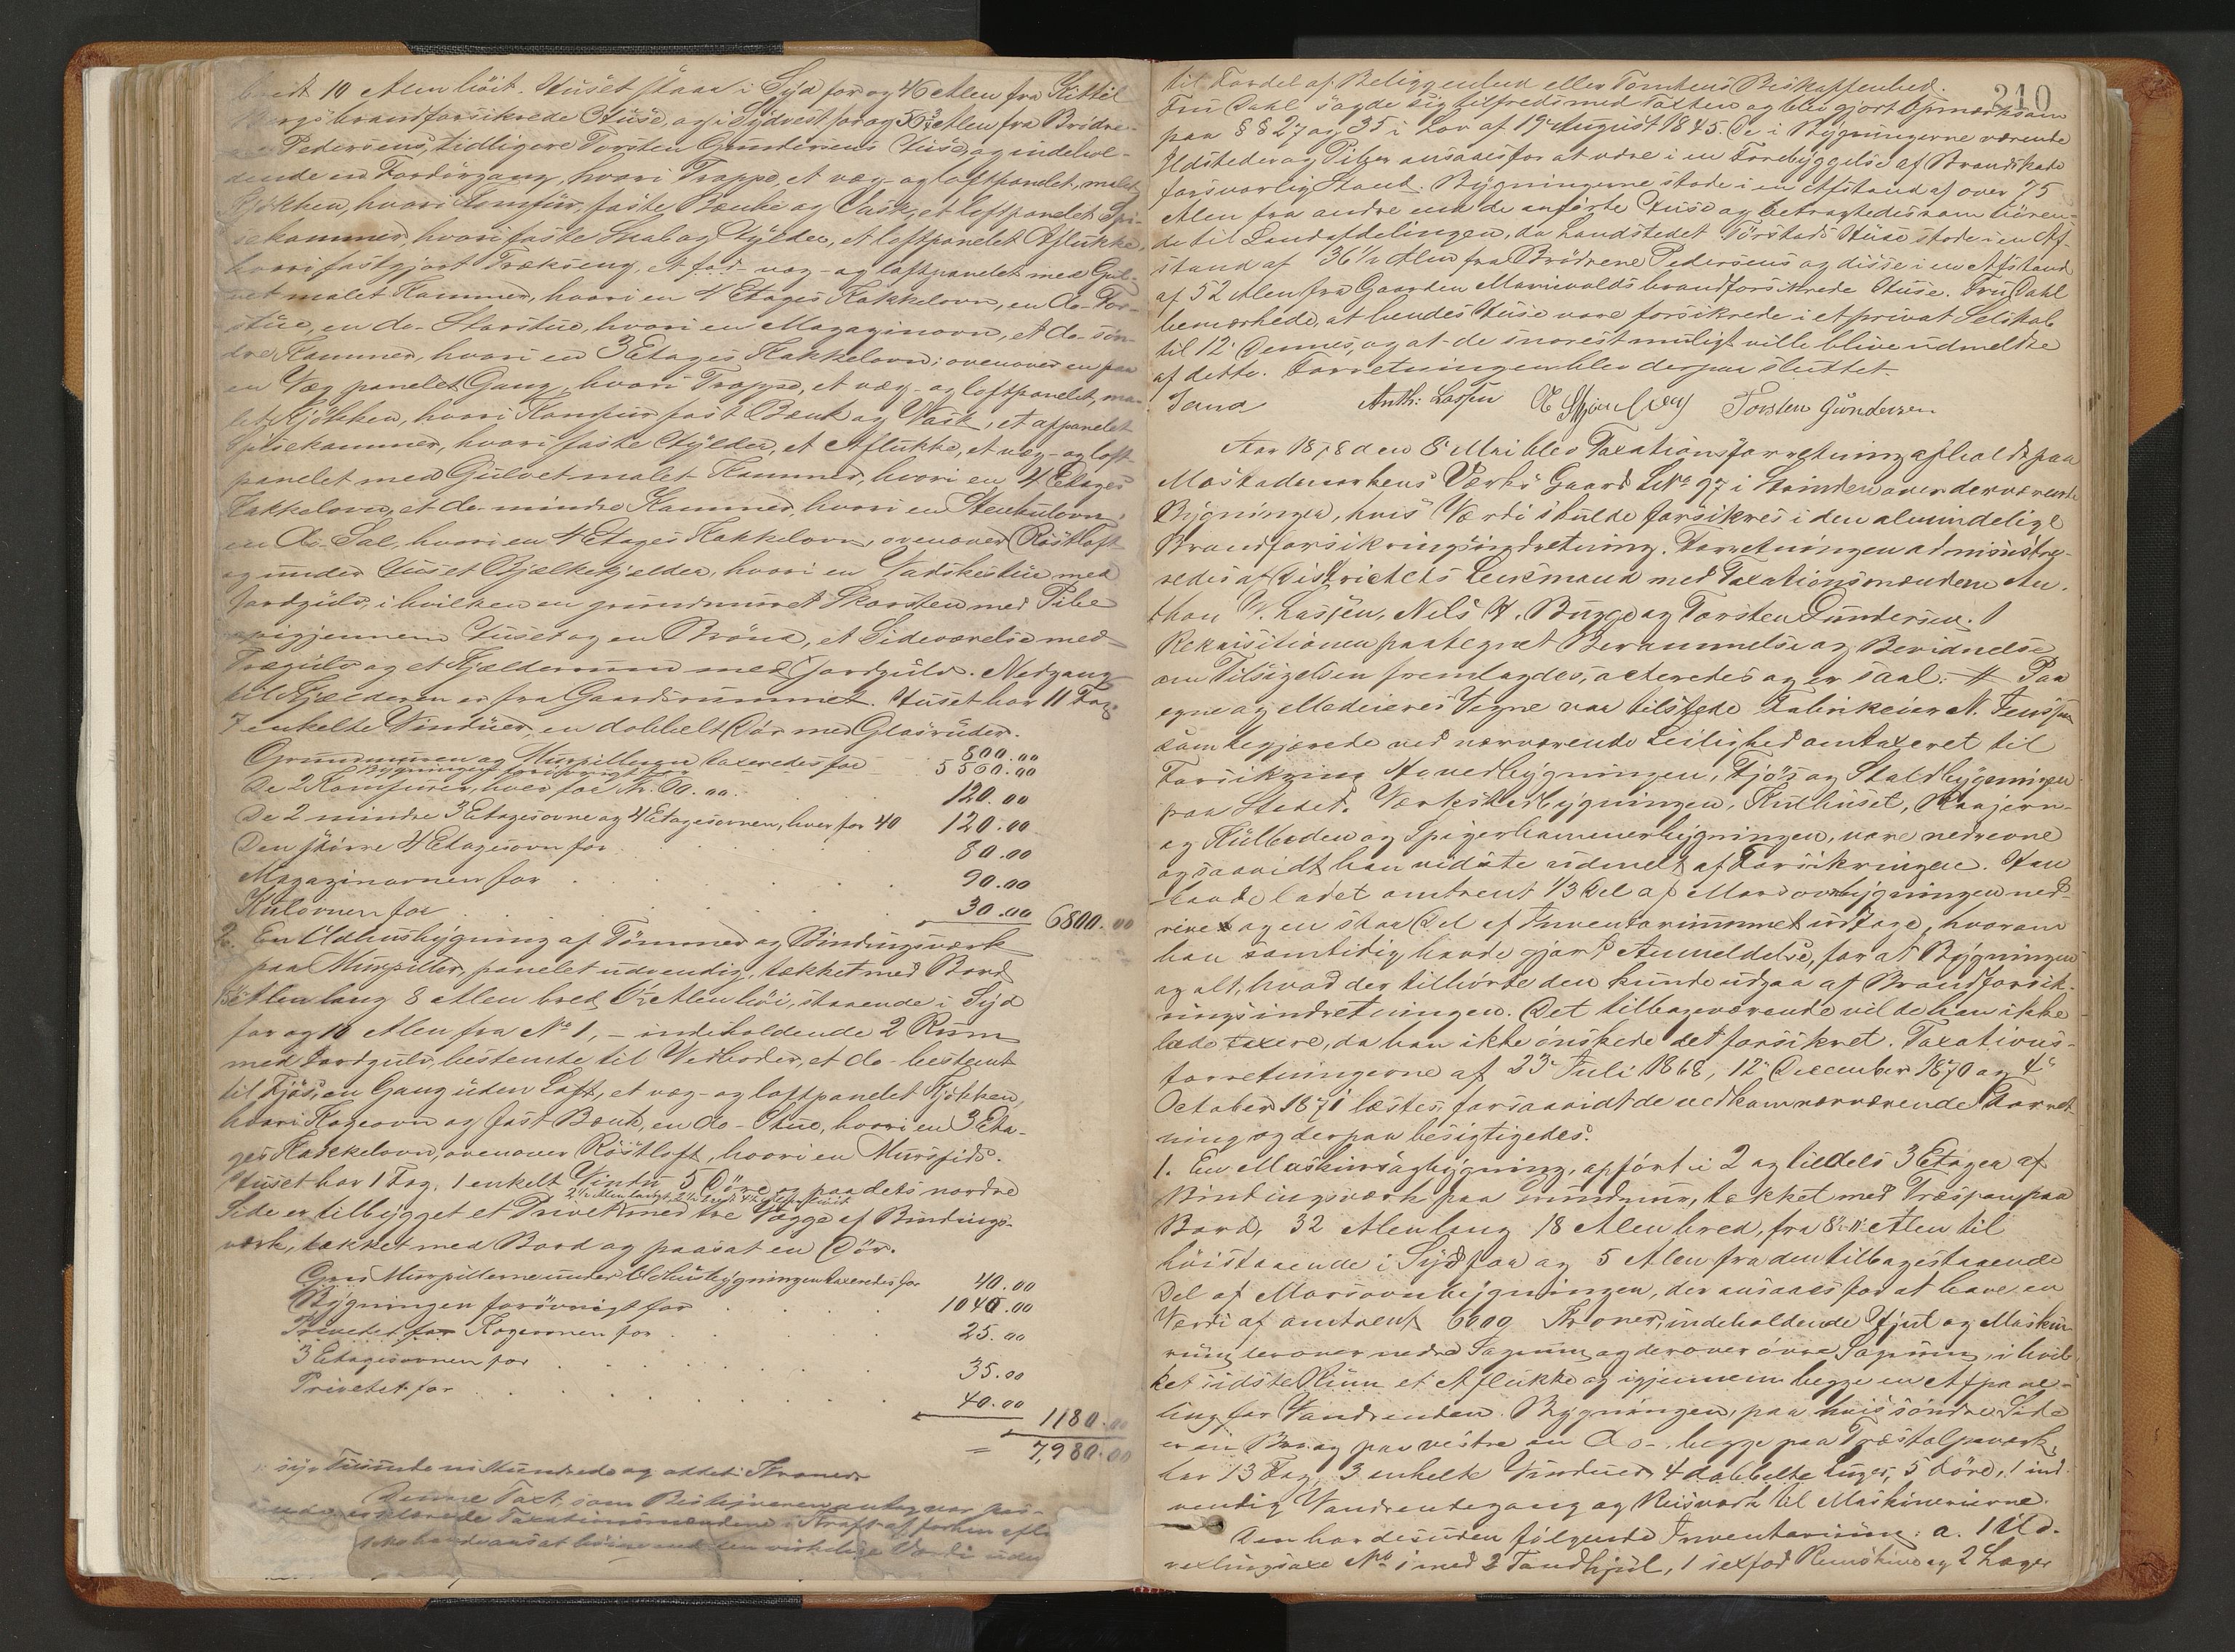 bredt 10 Alen höit. Huset staar i Syd for og 46 Alen fra Kittil
bergs brandforsikrede Huse, og i Sydvest for og 36½ Alen fra Brödre-
Pedersens, tidligere Torsten Gundersens Huse, og indehol-
dende en Fordörgang, hvori Trappe, et væg- og loftpanelet, malet
Kjökken, hvori Komfür, faste Bænke og Vask, et loftpanelet Spi-
sekammer, hvori faste Skab og Hylder, et loftpanelet Aflukke,
hvori fastgjort Trækseng, et fod- væg- og loftpanelet med Gul-
vet malet Kammer, hvori en 4 Etages Kakkelovn, en do- For-
stue, en do- Storstue, hvori en Magazinovn, et do- sön-
dre Kammer, hvori en 3 Etages Kakkelovn; ovenover en paa
en Væg panelet Gang, hvori Trappe, et væg- og loftpanelet, ma-
let Kjökken, hvori Komfur fast Bænk og Vask, et afpanelet
Spisekammer, hvori faste Hylder, et Aflukke, et væg- og loft-
panelet med Gulvet malet Kammer, hvori en 4 Etages
Kakkelovn, et do- mindre Kammer, hvori en Stenkulovn,
en do- Sal, hvori en 4 Etages Kakkelovn, ovenover Röstloft
og under Huset Bjælkekjelder, hvori en Vadskestue med
Jordgulv, i hvilken en grundmuret Skorsten med Pibe
opigjennem Huset og en Brönd, et Sideværelse med
Trægulv og et Kjælderrum med Jordgulv. Nedgang
til Kjælderen er fra Gaardsrummet. Huset har 11 Fag
7 enkelte Vinduer, en dobbelt Dör med Glasruder.
Grundmuren og Murpillerne taxeredes for 800.00
Bygningen forövrigt for 5560.00
De 2 Komfurer, hver for Kr. 60.00. 120.00
De 2 mindre 3 Etagesovne og 4 Etagesovnen, hver for 40 120.00
Den större 4 Etagesovn for 80.00
Magazinovnen for 90.00
Kulovnen for 30.00 6800.00
2. En Udhusbygning af Tömmer og Bindingsværk
paa Murpiller, panelet udvendig, tækket med Bord
Alen lang 8 Alen bred, 6½ Alen höi, staaende i Syd
for og 10 Alen fra No 1, - indeholdende 2 Rum
med Jordgulv, bestemte til Vedboder, et do- bestemt
til Fjös, en Gang uden Loft, et væg- og loftpanelet Kjökken,
hvori Kogeovn og fast Bænk, en do- Stue, hvori en 3 Eta-
ges Kakkelovn, ovenover Röstloft, hvori en Murspids.
Huset har 1 Fag, 1 enkelt Vindu 5 Döre og paa dets nordre
Side er tilbygget et Privet med tre Vægge af Bindings-
værk, tækket med Bord og paasat en Dör.
Murpillerne under Udhusbygningen taxeredes for 40.00
Bygningen forövrigt for 1040.00
Privetet for Kogeovnen for 25.00
3 Etagesovnen for 35.00
Privetet for 40.00
1180.00
= 7,980.00
syv Tusinde ni Hundrede og otteti Kroner
Denne Taxt, som Bestyreren antog var pas-
erklærede Taxationsmændene i Kraft af forhen aflagt
ikke havde ansat höiere end den virkelige Værdi uden
210
til Fordel af Beliggenhed eller Tomtens Beskaffenhed.
Fru Dahl sagde sig tilfreds med Taxten og blev gjort opmærksom
paa §§ 27 og 35 i Lov af 19 August 1845. De i Bygningerne værende
Ildsteder og Piber ansaaes for at være i en Forebyggelse af Brandskade
forsvarlig Stand. Bygningerne stode i en Afstand af over 75
Alen fra andre end de anförte Huse og betragtedes som hören-
de til Landafdelingen, da Landstedet Törstads Huse stode i en Af-
stand af 36½ Alen fra Brödrene Pedersens og disse i en Afstand
af 52 Alen fra Gaarden Marivolds brandforsikrede Huse. Fru Dahl
bemærkede, at hendes Huse vare forsikrede i et privat Selskab
til 12 Dennes, og at de snarest muligt ville blive udmeldte
af dette. Forretningen blev derpaa sluttet.
Anth: Lassen Torsten Gundersen
Aar 1878 den 8 Mai blev Taxationsforretning afholdt paa
Mostadmarkens Værks Gaard LNo 97 i Strinden over derværende
Bygninger, hvis Værdi skulde forsikres i den almindelige
Brandforsikringsindretning. Forretningen administre-
redes af Districtets Lensmand med Taxationsmændene An-
thon W. Lassen, Nils H. Bugge og Torsten Gundersen.
Rekvisitionen paategnet Berammelse og Beviddnelse
om Tilsigelsen fremlagdes, acteredes og er saal: # Paa
egne og Medeieres Vegne var tilstede Fabrikeier N. Jenssen
som begjærede ved nærværende Leilighed omtaxeret til
Forsikring Hovedbygningen, Fjös og Staldbygningen
paa Stedet. Værkstedbygningen, Kulhuset, Raajern-
og Kulboden og Spigerhammerbygningen, vare nedrevne
og saavidt han vidste udmeldt af Forsikringen. Han
havde ladet omtrent 1/3 del af Masovnbygningen ned-
rive og en stor Del af Inventariummet udtage, hvorom
han samtidig havde gjort Anmeldelse, for at Bygningen
og alt, hvad der tilhörte den kunde udgaa af Brandforsik-
ringsindretningen. Det tilbageværende vilde han ikke
lade taxere, da han ikke önskede det forsikret. Taxations-
forretningerne af 23 Juli 1868, 12 December 1870 og 4
October 1871 læstes, forsaavidt de vedkom nærværende Forret-
ning og derpaa besigtigedes:
1. En Maskinsagbygning, opfört i 2 og tildels 3 Etager af
Bindingsværk paa Grundmur, tækket med Træspon paa
Bord, 32 Alen lang 18 Alen bred, fra 8½-11 Alen til
höi staaende i Syd for og 5 Alen fra den tilbagestaaende
Del af Masovnbygningen, der ansaaes for at have en
Værdi af omtrent 6000 Kroner, indeholdende Hjul og Maskin-
rum derover nedre Sagrum, og derover övre Sagrum, i hvil-
ket sidste Rum et Aflukke og igjennem begge en Afpane-
ling for Vandrenden. Bygningen, paa hvis söndre Side
er en Bro og paa vestre en do-, begge paa Træstolpeværk,
har 13 Fag, 3 enkelte Vinduer, 4 dobbelte Luger, 5 Döre, 1 ind-
vendig Vandrendegang og Reisværk til Maskinerierne.
Den har desuden fölgende Inventarium: a. 1 Ud-
vexlingsaxe No 1 med 2 Tandhjul, 1 sexfod Remskive og 2 Lager